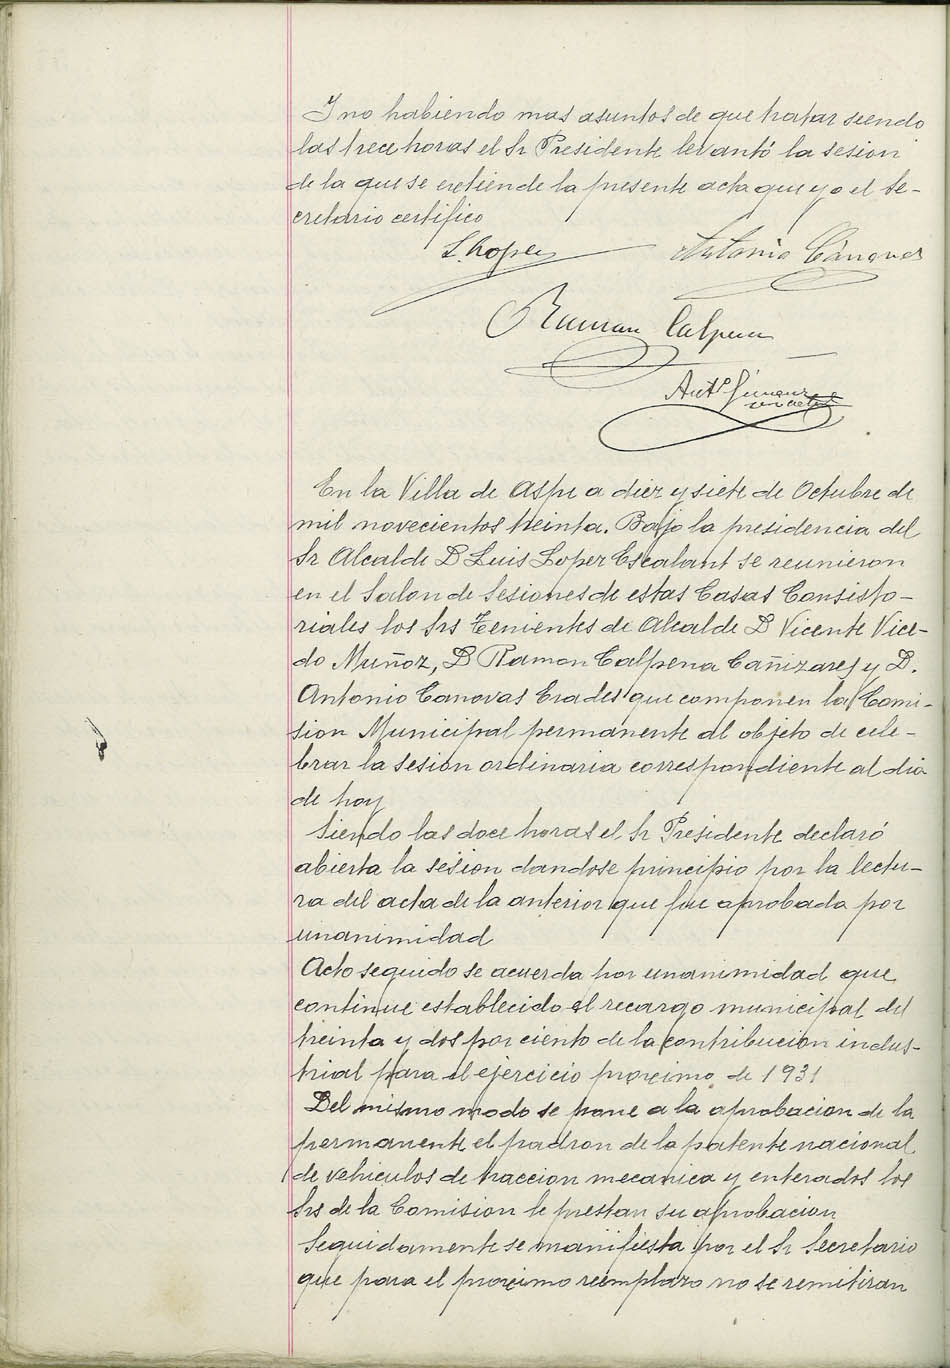 Y no habiendo mas asuntos de que tratar siendo
las trece horas el Sr Presidente levantó la sesion
de la que se extiende la presente acta que yo el Se-
cretario certifico
L. Lopez Antonio Cánovas
Ramon Calpena
Antº Gimenez
En la Villa de Aspe a diez y siete de Octubre de
mil novecientos treinta. Bajo la presidencia del
Sr Alcalde D Luis Lopez Escalant se reunieron
en el Salon de Sesiones de estas Casas Consisto-
riales los Srs Tenientes de Alcalde D Vicente Vice-
do Muñoz, D Ramon Calpena Cañizares y D.
Antonio Canovas Erades que componen la Comi-
sion Municipal permanente al objeto de cele-
brar la sesion ordinaria correspondiente al dia
de hoy
Siendo las doce horas el Sr Presidente declaró
abierta la sesion dandose principio por la lectu-
ra del acta de la anterior que fue aprobada por
unanimidad
Acto seguido se acuerda por unanimidad que
continue establecido el recargo municipal del
treinta y dos por ciento de la contribucion indus-
trial para el ejercicio proximo de 1931
Del mismo modo se pone a la aprobacion de la
permanente el padron de la patente nacional
de vehiculos de traccion mecanica y enterados los
Srs de la Comision le prestan su aprobacion
Seguidamente se manifiesta por el Sr Secretario
que para el proximo reemplazo no se remitiran